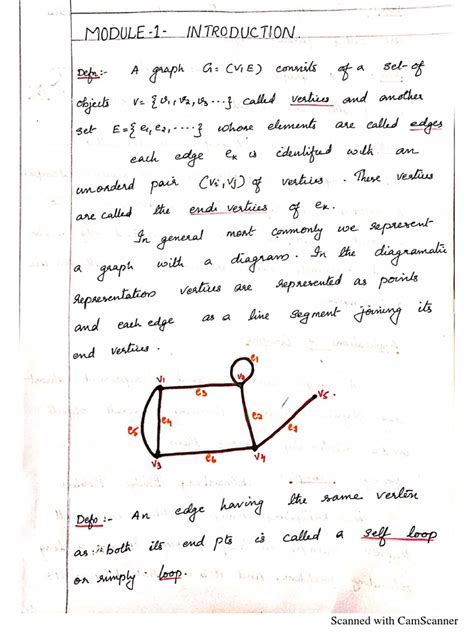 MODULE-1- INTRODUCTION.
Defn:- A graph G = (V,E) consists of a set of
objects V = {v1, v2, v3 ...} called vertices and another
set E = {e1, e2, ....} whose elements are called edges
each edge ek is identified with an
unorderd pair (vi, vj) of vertices. These vertices
are called the end vertices of ek.
In general most commonly we represent
a graph with a diagram. In the diagramatic
representation vertices are represented as points
and each edge as a line segment joining its
end vertices.
e1
v1 v2 v5
e3
e5 e4 e2 e7
v3 e6 v4
Defn:- An edge having the same vertex
as both its end pts is called a self loop
or simply loop.
Scanned with CamScanner